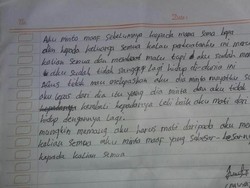 Aku minta maap sebelumnya kepada mama sama bapa
dan kepada keluarga semua kalau perbuatanku ini
kalian semua dan membuat malu tapi aku sudah
aku sudah tidak sanggup lagi hidup di dunia ini
tidak mau melepaskan aku dia minta
aku lepas dari dia itu yang dia mau dan aku tidak
kembali kepadanya lebih baik aku mati dari
hidup dengannya lagi.
mungkin memang aku harus mati daripada aku
kalian semua aku minta maap yang sebesar-besarnya
kepada kalian semua